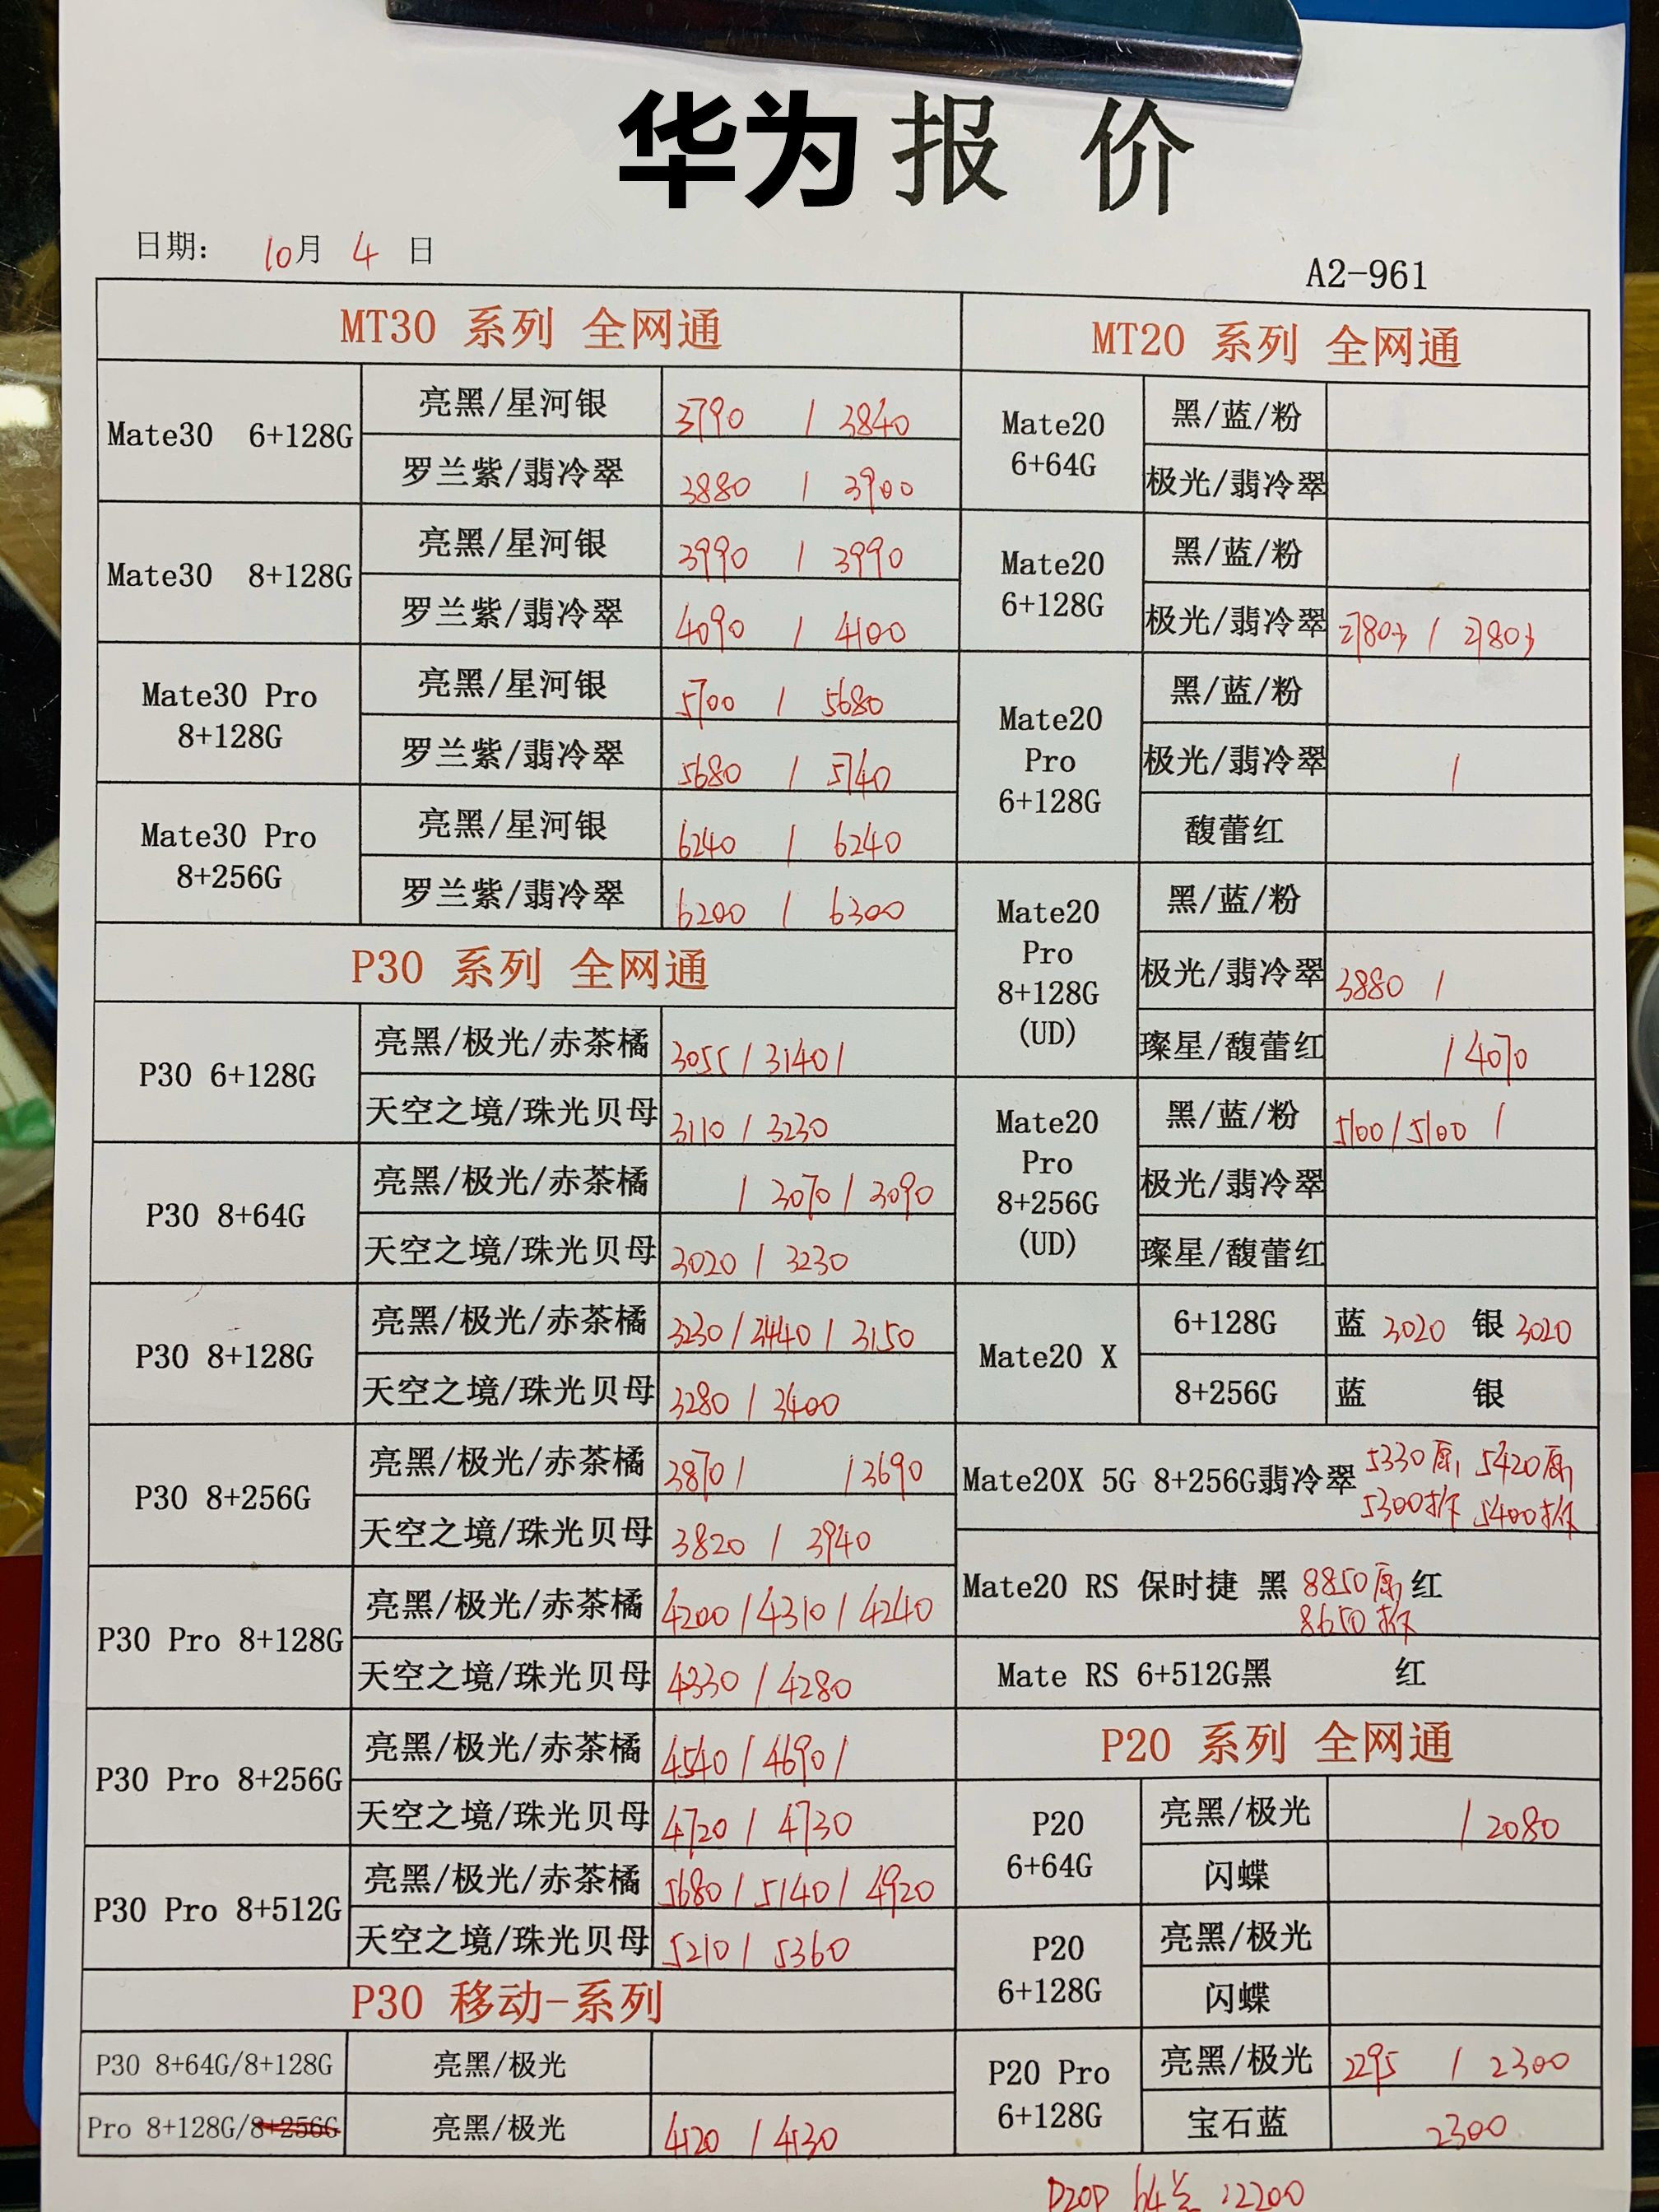 华为报价
日期: 10月 4 日
A2-961
MT30 系列 全网通
Mate30 6+128G
亮黑/星河银 3790 / 3840
罗兰紫/翡冷翠 3880 / 3900
Mate30 8+128G
亮黑/星河银 3990 / 3990
罗兰紫/翡冷翠 4090 / 4100
Mate30 Pro
8+128G
亮黑/星河银 5700 / 5680
罗兰紫/翡冷翠 5680 / 5740
Mate30 Pro
8+256G
亮黑/星河银 6240 / 6240
罗兰紫/翡冷翠 6200 / 6300
P30 系列 全网通
P30 6+128G
亮黑/极光/赤茶橘 3055 / 3140 /
天空之境/珠光贝母 3110 / 3230
P30 8+64G
亮黑/极光/赤茶橘 / 3070 / 3090
天空之境/珠光贝母 3020 / 3230
P30 8+128G
亮黑/极光/赤茶橘 3230 / 3440 / 3150
天空之境/珠光贝母 3280 / 3400
P30 8+256G
亮黑/极光/赤茶橘 3870 / / 3690
天空之境/珠光贝母 3820 / 3940
P30 Pro 8+128G
亮黑/极光/赤茶橘 4200 / 4310 / 4240
天空之境/珠光贝母 4330 / 4280
P30 Pro 8+256G
亮黑/极光/赤茶橘 4540 / 4690 /
天空之境/珠光贝母 4720 / 4730
P30 Pro 8+512G
亮黑/极光/赤茶橘 5680 / 5140 / 4920
天空之境/珠光贝母 5210 / 5360
P30 移动-系列
P30 8+64G/8+128G 亮黑/极光
Pro 8+128G/8+256G 亮黑/极光 4120 / 4130
MT20 系列 全网通
Mate20
6+64G
黑/蓝/粉
极光/翡冷翠
Mate20
6+128G
黑/蓝/粉
极光/翡冷翠 /
Mate20
Pro
6+128G
黑/蓝/粉
极光/翡冷翠 /
馥蕾红
Mate20
Pro
8+128G
(UD)
黑/蓝/粉
极光/翡冷翠 3880 /
璨星/馥蕾红 / 4070
Mate20
Pro
8+256G
(UD)
黑/蓝/粉 5100 / 5100 /
极光/翡冷翠
璨星/馥蕾红
Mate20 X
6+128G 蓝 3020 银 3020
8+256G 蓝 银
Mate20X 5G 8+256G翡冷翠 5330原 5420原
5300拆 5400拆
Mate20 RS 保时捷 黑 8850原 红
8650拆
Mate RS 6+512G黑 红
P20 系列 全网通
P20
6+64G
亮黑/极光 / 2080
闪蝶
P20
6+128G
亮黑/极光
闪蝶
P20 Pro
6+128G
亮黑/极光 2295 / 2300
宝石蓝 2300
P20P 64 :2200